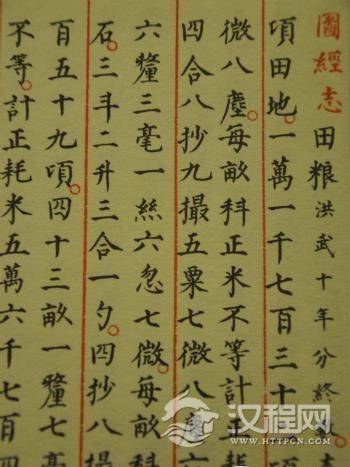 圖經志田粮洪武十年分終
項田地一萬一千七百三十
微八塵每畝科正米不等計正耗
四合八抄九撮五粟七微八塵六
六釐三毫一絲六忽七微每畝科
石三斗二升三合一勺四抄八
百五十九項四十三畝一釐七毫
不等計正耗米五萬六千七百四
汉程网
WWW.HTTPCN.COM